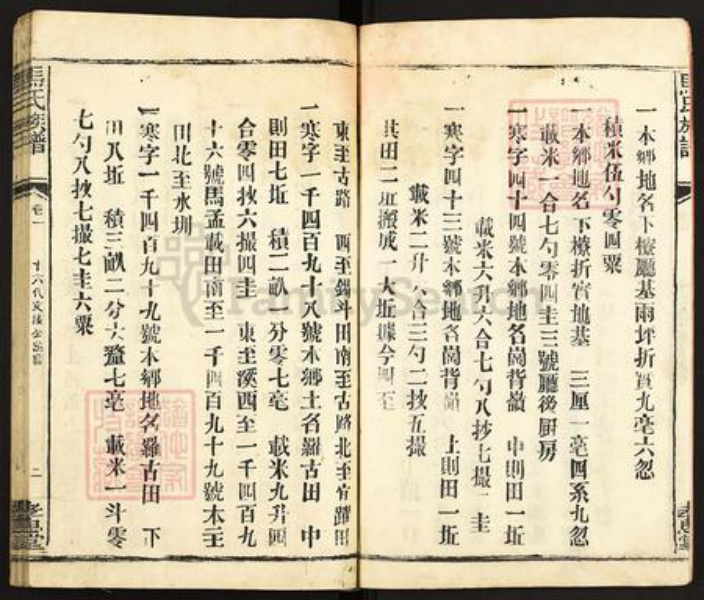 一本鄉地名下橑廳基兩坪折實九毫六忽
積米伍勺零四粟
一本鄉地名下橑折實地基 三厘一毫四系九忽
載米一合七勺零四圭三號廳後厨房
一寒字四十四號本鄉地名崗背嶺 中則田一坵
載米六升六合七勺八抄七撮一圭
一寒字四十三號本鄉地名崗背嶺 上則田一坵
載米二升八合三勺二抄五撮
其田二坵搬成一大坵據今四至
東至古路 西至 斗田南至古路北至 躍田
一寒字一千四百九十八號本鄉土名羅古田 中
則田七坵 積二畝一分零七毫 載米九升四
合零四抄六撮四圭 東至溪西至一千四百九
十六號馬孟載田南至一千四百九十九號本主
田北至水圳
一寒字一千四百九十九號本鄉地名羅古田 下
田八坵 積三畝二分六釐七毫 載米一斗零
七勺八抄七撮七圭六粟
馬氏族譜
卷一
二
孝思堂
馬氏族譜
孝思堂
FamilySearch